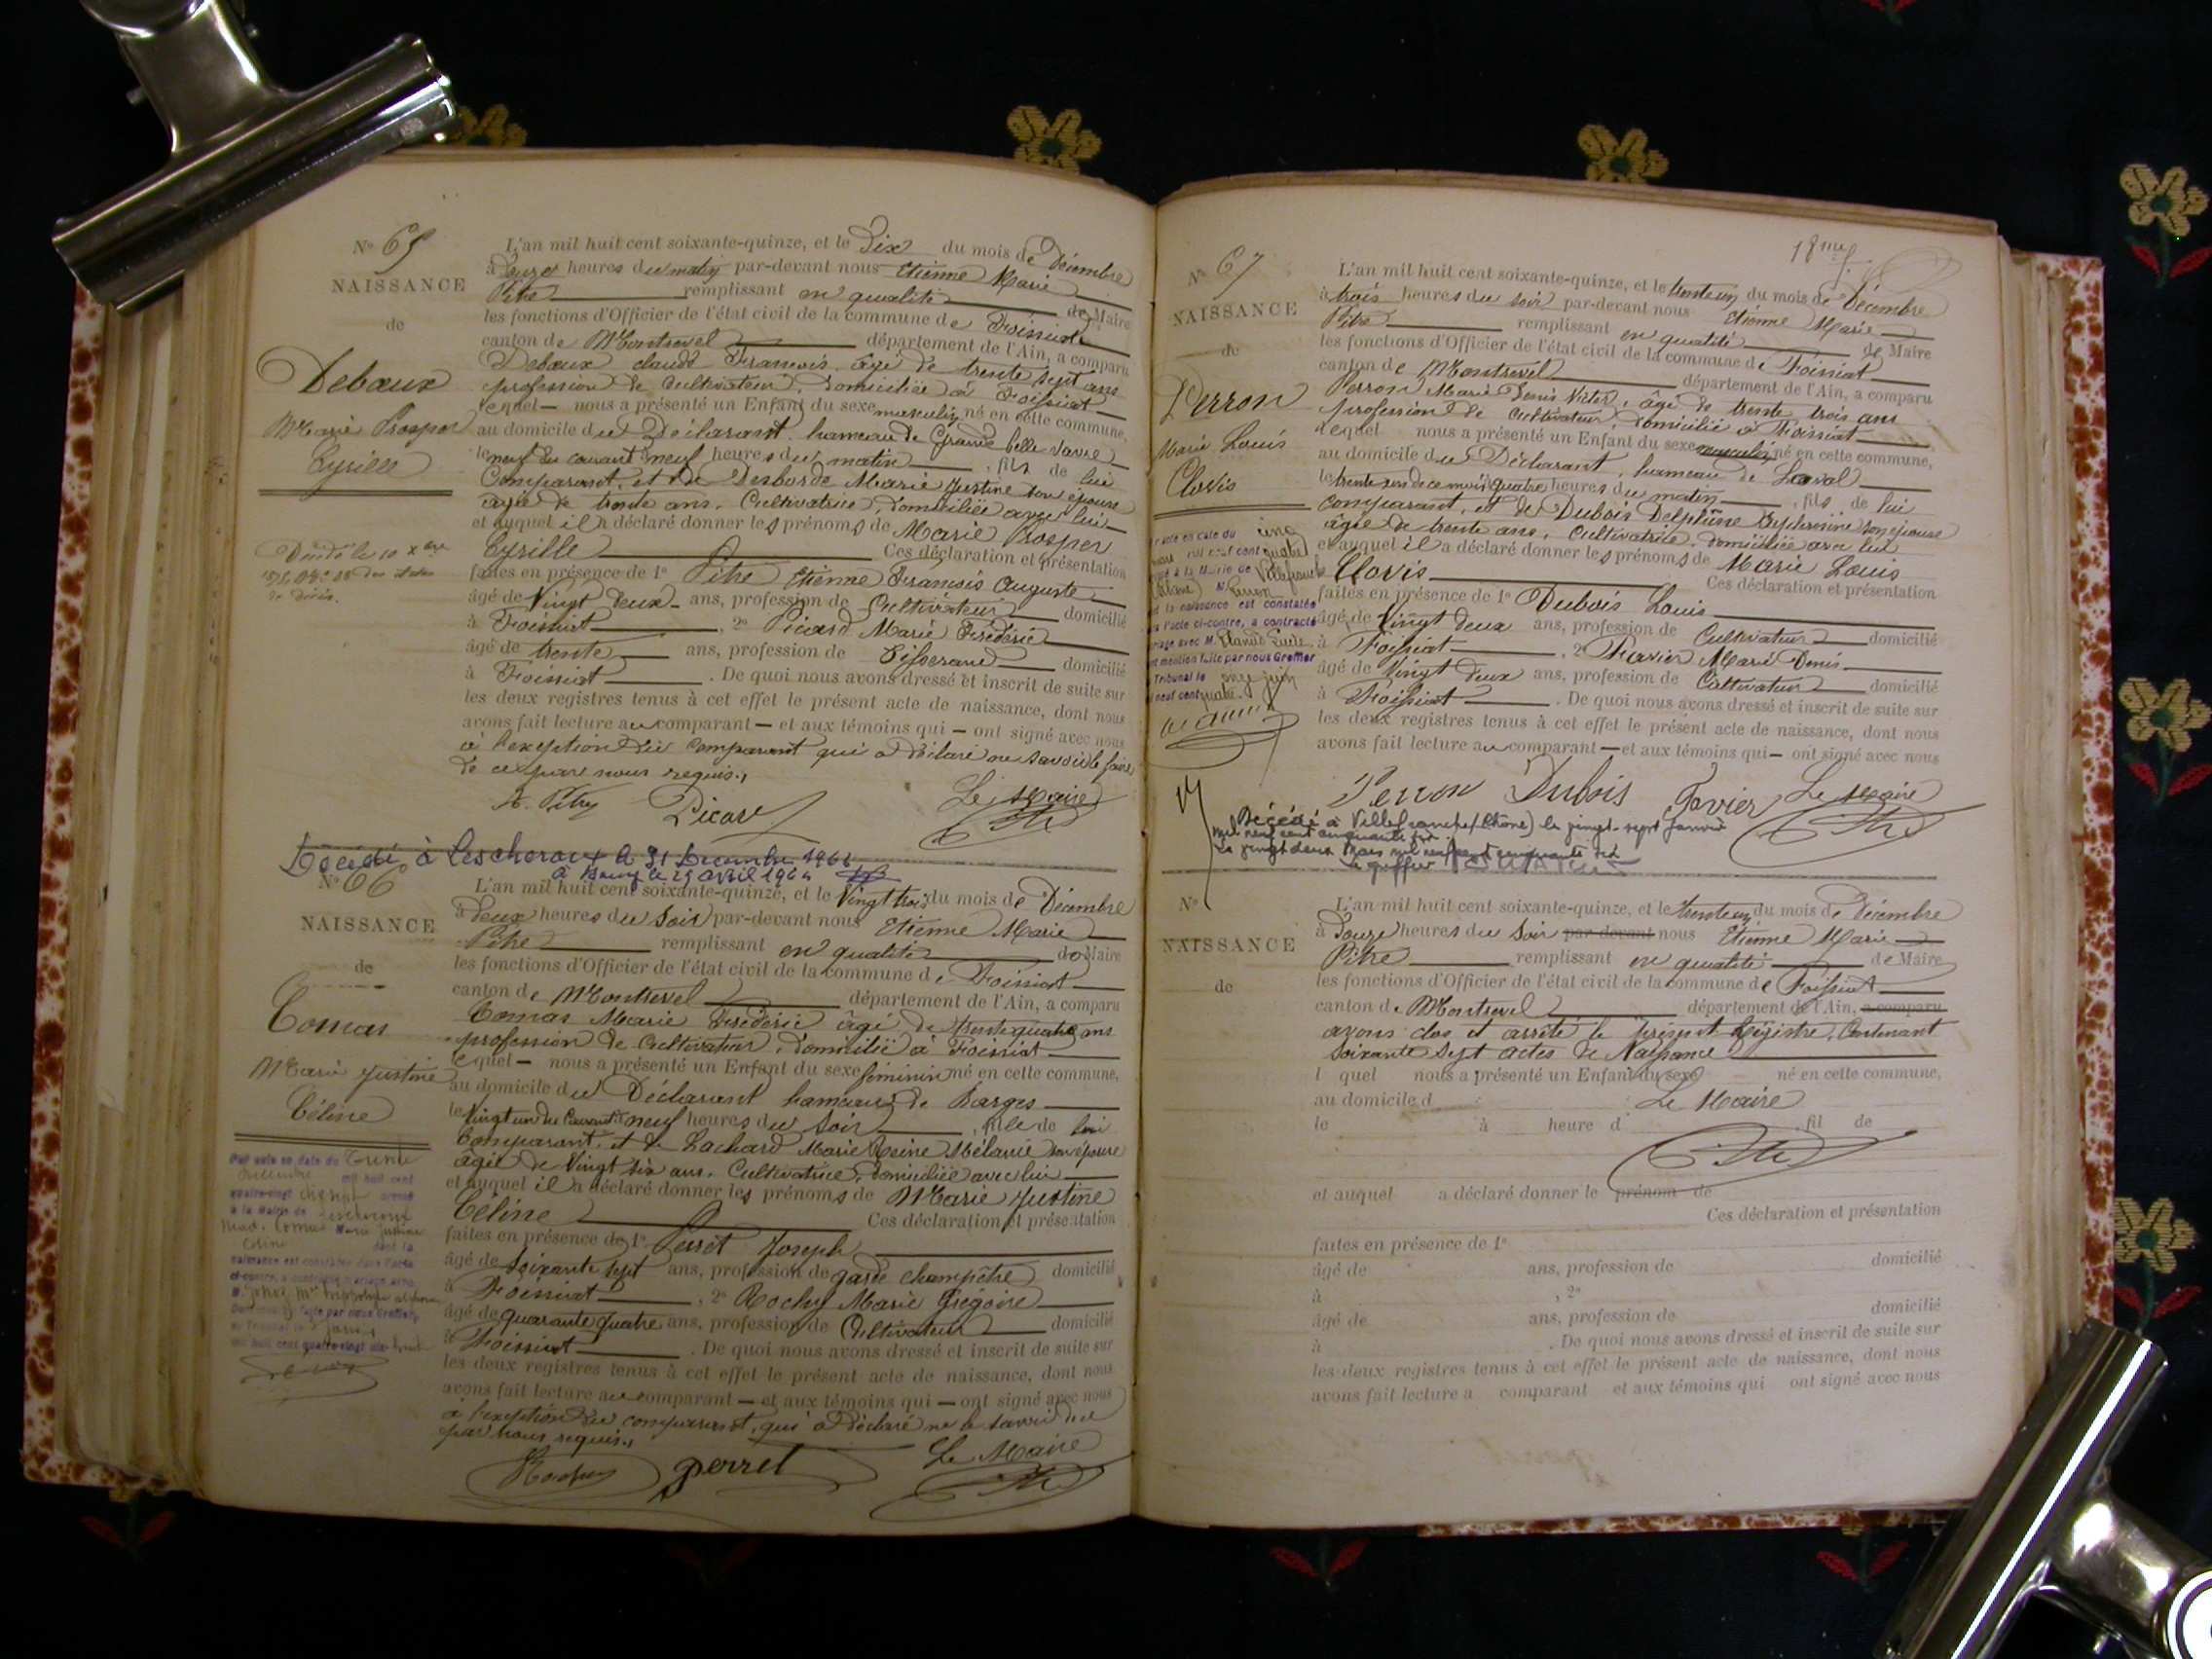 N° 65
NAISSANCE
de
Debœux
Marie Prosper
Cyrille
Décédé le 10 Xbre
L'an mil huit cent soixante-quinze, et le Dix du mois de Décembre
à Douze heures du matin par-devant nous Etienne Marie
Pitre remplissant en qualité de Maire
les fonctions d'Officier de l'état civil de la commune de Foissiat
canton de Montrevel département de l'Ain, a comparu
Debœux claude François âgé de trente sept ans
profession de Cultivateur, domicilié à Foissiat
lequel nous a présenté un Enfant du sexe masculin né en cette commune,
au domicile du Déclarant, hameau de Grande
le neuf du courant neuf heures du matin, fils de lui
Comparant, et de Desborde Marie Justine son épouse
âgée de trente ans, Cultivatrice, domiciliée avec lui
et auquel il a déclaré donner les prénoms de Marie Prosper
Cyrille Ces déclaration et présentation
faites en présence de 1° Pitre Etienne François Auguste
âgé de Vingt Deux ans, profession de Cultivateur domicilié
à Foissiat, 2° Picard Marie Frédéric
âgé de trente ans, profession de Tisserand domicilié
à Foissiat. De quoi nous avons dressé et inscrit de suite sur
les deux registres tenus à cet effet le présent acte de naissance, dont nous
avons fait lecture au comparant — et aux témoins qui — ont signé avec nous
à l'exception du Comparant qui a déclaré ne savoir le faire
de ce par nous requis.
Picard Le Maire
Décédé à Lescheroux le 31 Décembre
à le 29 avril 1964
N° 66
NAISSANCE
de
Comas
Marie Justine
Céline
Par acte en date du Trente
Décembre mil huit cent
quatre-vingt
à la Mairie de Lescheroux
Marie Justine
Céline dont la
naissance est constatée dans l'acte
ci-contre, a contracté mariage avec
L'an mil huit cent soixante-quinze, et le Vingt trois du mois de Décembre
à Deux heures du Soir par-devant nous Etienne Marie
Pitre remplissant en qualité de Maire
les fonctions d'Officier de l'état civil de la commune de Foissiat
canton de Montrevel département de l'Ain, a comparu
Comas Marie Frédéric âgé de trente quatre ans
profession de Cultivateur, domicilié à Foissiat
lequel — nous a présenté un Enfant du sexe féminin né en cette commune,
au domicile du Déclarant hameau de Barges
le Vingt un du Courant à neuf heures du Soir, fille de lui
Comparant, et de Lachard Marie Reine Mélanie son épouse
âgée de Vingt six ans, Cultivatrice, domiciliée avec lui
et auquel il a déclaré donner les prénoms de Marie Justine
Céline Ces déclaration et présentation
faites en présence de 1° Perret Joseph
âgé de Soixante sept ans, profession de garde champêtre domicilié
à Foissiat, 2° Rochy Marie Grégoire
âgé de quarante quatre ans, profession de Cultivateur domicilié
à Foissiat. De quoi nous avons dressé et inscrit de suite sur
les deux registres tenus à cet effet le présent acte de naissance, dont nous
avons fait lecture au comparant — et aux témoins qui — ont signé avec nous
à l'exception du comparant, qui a déclaré ne le savoir de ce
par nous requis.
perret Le Maire
18me f.
N° 67
NAISSANCE
de
Perron
Marie Louis
Clovis
acte en date du cinq
mil neuf cent quatre
à la Mairie de Villefranche
(Rhône) M. Perron
la naissance est constatée
l'acte ci-contre, a contracté
mariage avec M.
mention faite par nous Greffier
Tribunal le onze juin
neuf cent quatre.
L'an mil huit cent soixante-quinze, et le trente un du mois de Décembre
à trois heures du soir par-devant nous Etienne Marie
Pitre remplissant en qualité de Maire
les fonctions d'Officier de l'état civil de la commune de Foissiat
canton de Montrevel département de l'Ain, a comparu
Perron Marie Denis Victor, âgé de trente trois ans
profession de Cultivateur, domicilié à Foissiat
lequel nous a présenté un Enfant du sexe masculin né en cette commune,
au domicile du Déclarant, hameau de Laval
le trente un de ce mois quatre heures du matin, fils de lui
comparant, et de Dubois Delphine son épouse
âgée de trente ans, Cultivatrice, domiciliée avec lui
et auquel il a déclaré donner les prénoms de Marie Louis
Clovis Ces déclaration et présentation
faites en présence de 1° Dubois Louis
âgé de Vingt Deux ans, profession de Cultivateur domicilié
à Foissiat, 2° Favier Marie Denis
âgé de Vingt Deux ans, profession de Cultivateur domicilié
à Foissiat. De quoi nous avons dressé et inscrit de suite sur
les deux registres tenus à cet effet le présent acte de naissance, dont nous
avons fait lecture au comparant — et aux témoins qui — ont signé avec nous
Perron Dubois Favier Le Maire
Décédé à Villefranche (Rhône) le vingt-sept Janvier
mil neuf cent cinquante
Le vingt deux Mars mil neuf cent cinquante
Le greffier
N°
NAISSANCE
de
L'an mil huit cent soixante-quinze, et le trente un du mois de Décembre
à Douze heures du Soir par-devant nous Etienne Marie
Pitre remplissant en qualité de Maire
les fonctions d'Officier de l'état civil de la commune de Foissiat
canton de Montrevel département de l'Ain, a comparu
avons clos et arrêté le présent Régistre, Contenant
soixante sept actes de Naissance
l quel nous a présenté un Enfant du sexe né en cette commune,
au domicile d Le Maire
le à heure d fil de
et auquel a déclaré donner le prénom de
Ces déclaration et présentation
faites en présence de 1°
âgé de ans, profession de domicilié
à , 2°
âgé de ans, profession de domicilié
à . De quoi nous avons dressé et inscrit de suite sur
les deux registres tenus à cet effet le présent acte de naissance, dont nous
avons fait lecture a comparant et aux témoins qui ont signé avec nous